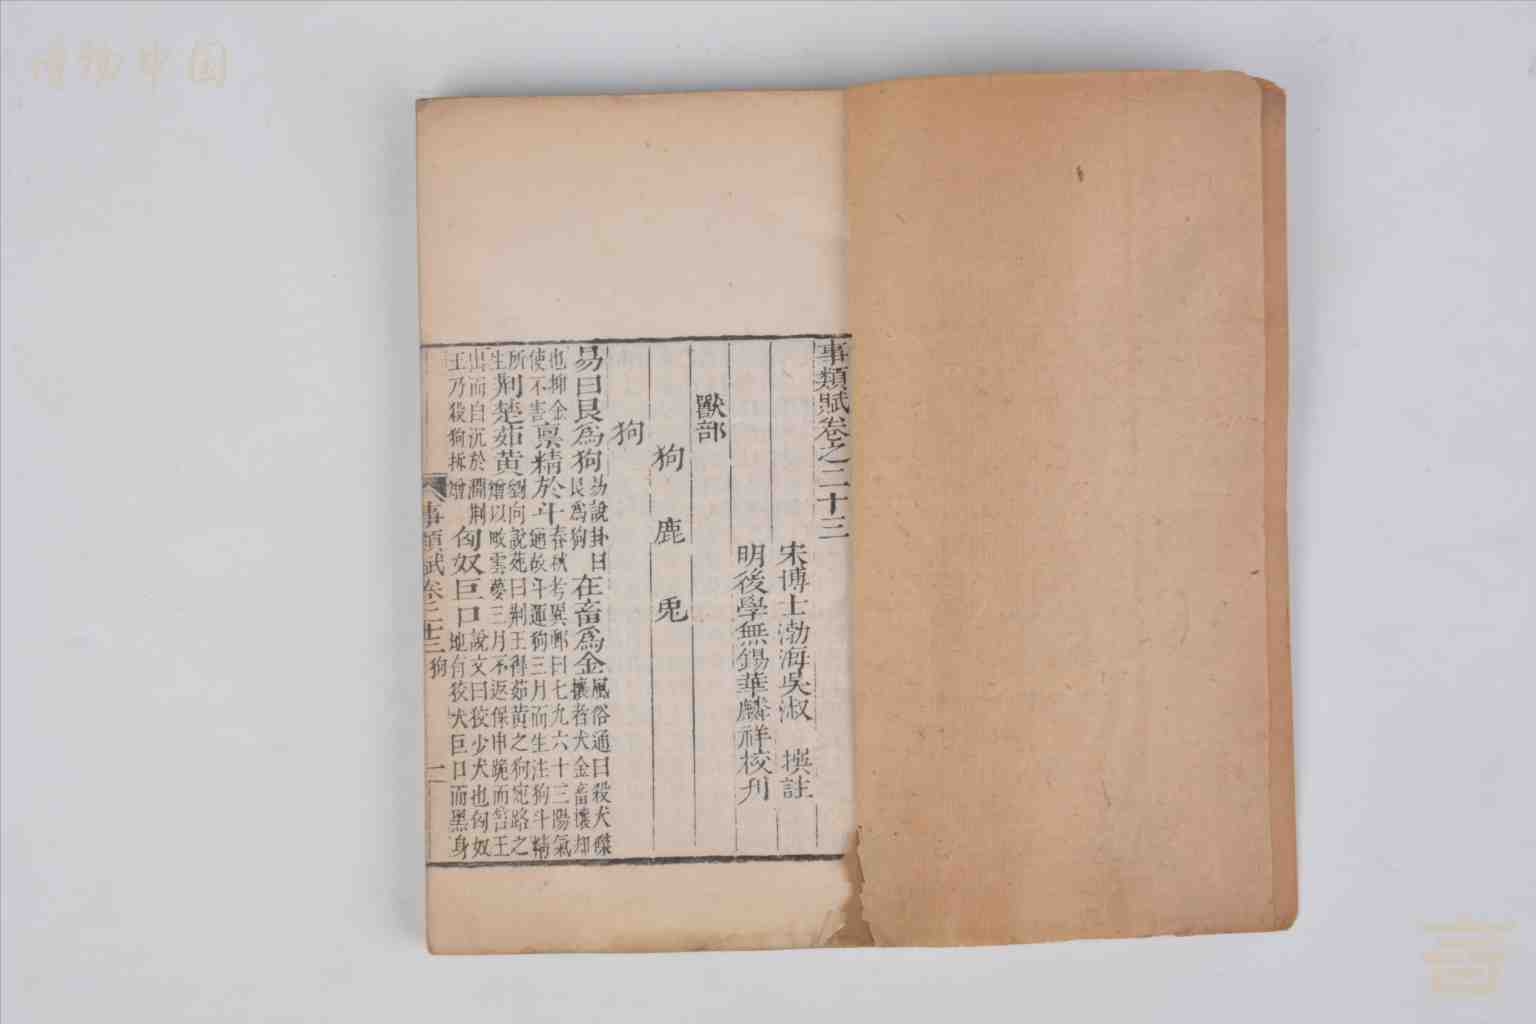 事類賦卷之二十三
宋博士渤海吳淑 撰註
明後學無錫華麟祥校刋
獸部
狗 鹿 兎
狗
易曰艮爲狗易說卦曰艮爲狗在畜爲金風俗通曰殺犬磔攘者犬金畜攘却
也抑金使不害禀精於斗春秋考異郵曰七九六十三陽氣通故斗運狗三月而生注狗斗精
所生荆楚茹黄劉向說苑曰荆王得茹黄之狗宛路之矰以畋雲夢三月不返保申跪而笞王
出而自沉於澗荆王乃殺狗折矰匈奴巨口說文曰狡少犬也匈奴地有狡犬巨口而黑身
事類賦卷二十三 狗 一
博物中国